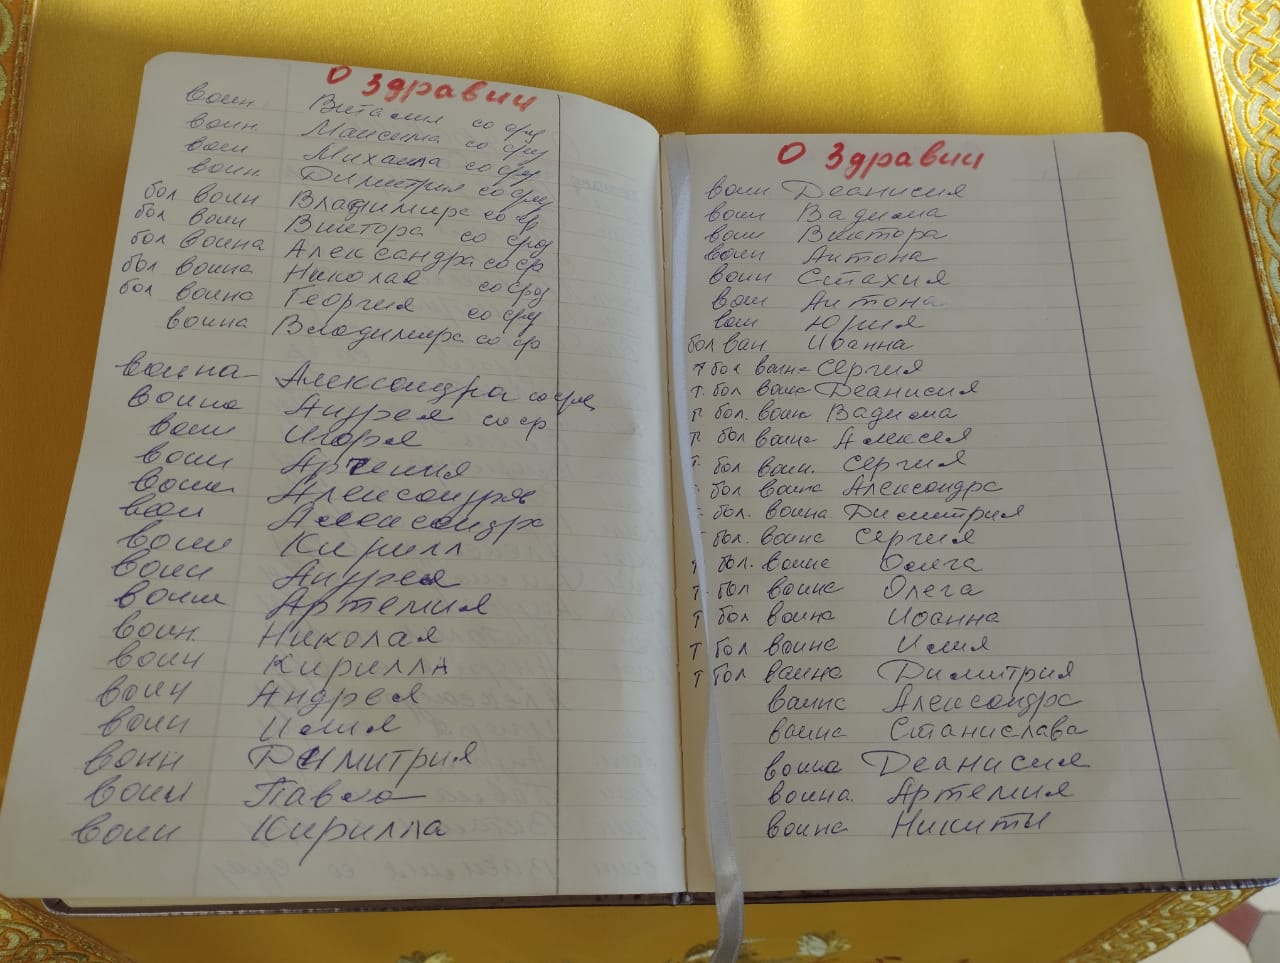 О здравии
воин Виталия со срд
воин. Максима со срд
воин Михаила со срд
воин. Димитрия со срд
бол воин Владимира со ср
бол воин Виктора со срд
бол воина Александра со ср
бол воина Николая со срд
бол воина Георгия со срд
воина Владимира со ср
воина Александра со срд
воина Андрея со ср
воин Игоря
воин Артемия
воин Александра
воин Александра
воин Кирилл
воин Андрея
воин Артемия
воин. Николая
воин Кирилла
воин Андрея
воин Илия
воин Димитрия
воин Павла
воин Кирилла
О здравии
воин Деанисия
воин Вадима
воин Виктора
воин Антона
воин Стахия
воин Антона
воин Юрия
бол воин Иоанна
т бол воина Сергия
т. бол воина Деанисия
т бол. воина Вадима
т бол воина Алексея
т. бол воин. Сергия
т бол воина Александра
т бол. воина Димитрия
т бол. воина Сергия
т бол. воина Олега
т бол воина Олега
т бол воина Иоанна
т бол воина Илия
т бол воина Димитрия
воина Александра
воина Станислава
воина Деанисия
воина. Артемия
воина Никиты